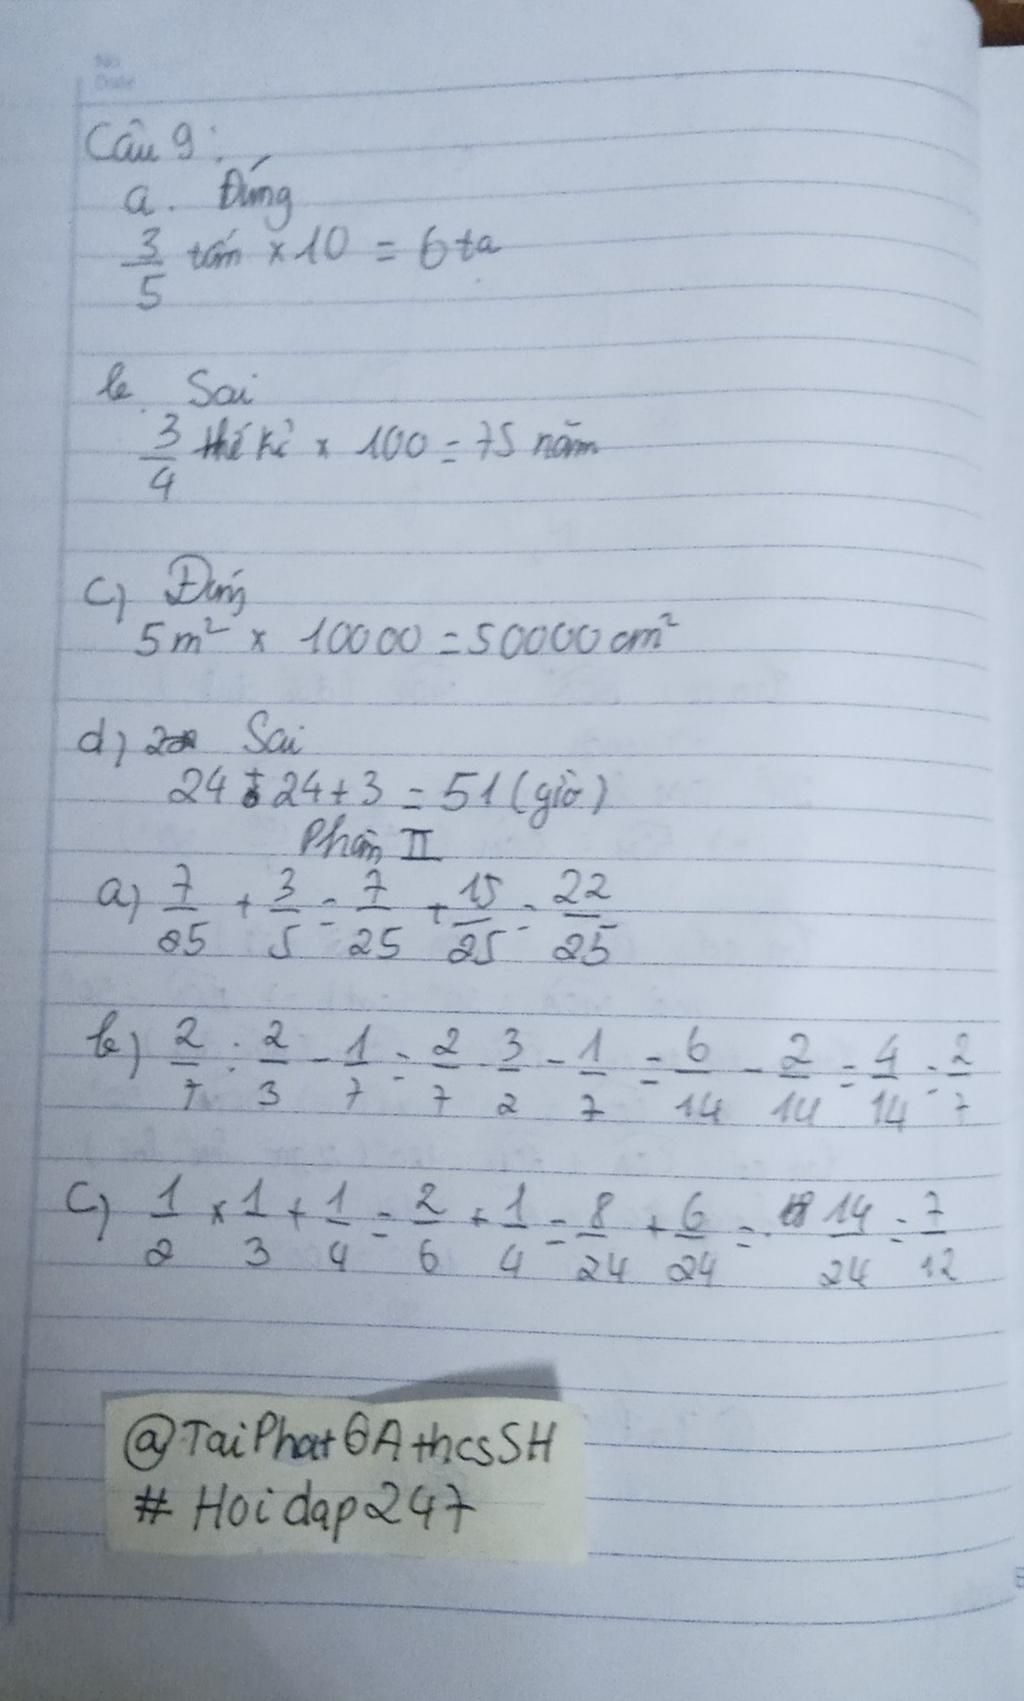 No
Date
Câu 9:
a. Đúng
3/5 tấn × 10 = 6 tạ
b. Sai
3/4 thế kỉ × 100 = 75 năm
c) Đúng
5m² × 10000 = 50000 cm²
d) Sai
24 + 24 + 3 = 51 (giờ)
Phần II
a) 7/25 + 3/5 = 7/25 + 15/25 = 22/25
b) 2/7 : 2/3 - 1/7 = 2/7 . 3/2 - 1/7 = 6/14 - 2/14 = 4/14 = 2/7
c) 1/2 × 1/3 + 1/4 = 2/6 + 1/4 = 8/24 + 6/24 = 14/24 = 7/12
@TaiPhat6AthcsSH
# Hoidap247